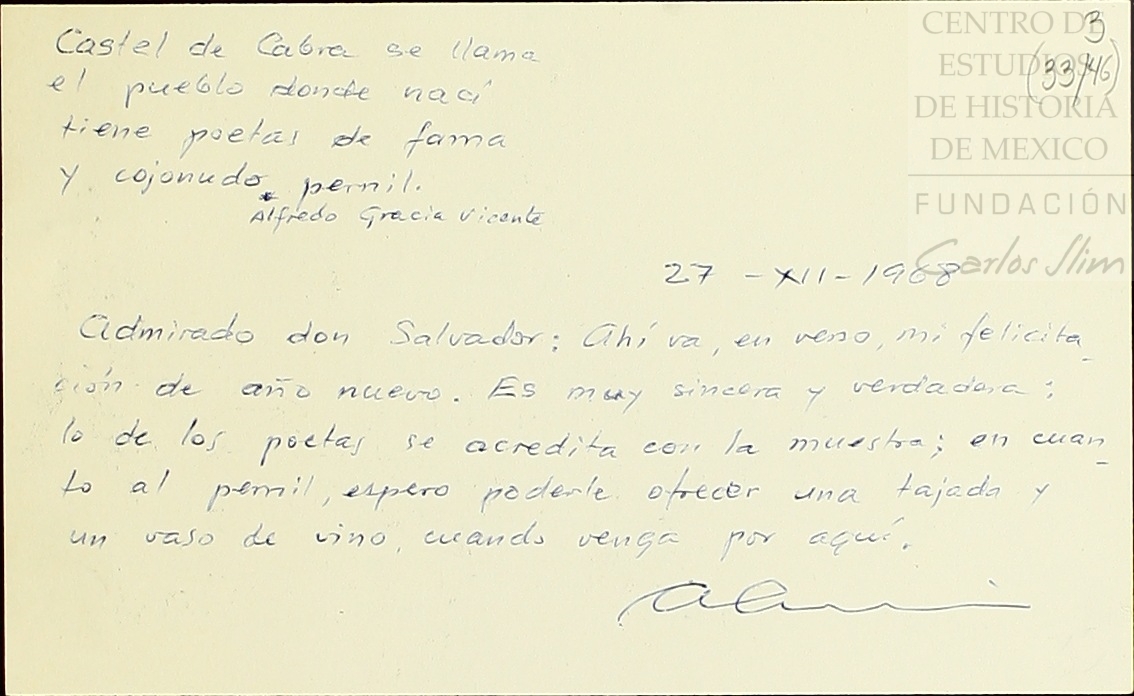 CENTRO DE
ESTUDIOS
DE HISTORIA
DE MEXICO
FUNDACIÓN
Carlos Slim
3
(33/46)
Castel de Cabra se llama
el pueblo donde nací
tiene poetas de fama
y cojonudo pernil.
Alfredo Gracia Vicente
27 - XII - 1968
Admirado don Salvador: Ahí va, en verso, mi felicita-
ción de año nuevo. Es muy sincera y verdadera:
lo de los poetas se acredita con la muestra; en cuan-
to al pernil, espero poderle ofrecer una tajada y
un vaso de vino, cuando venga por aquí.